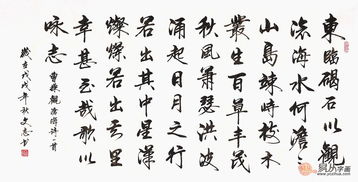 東臨碣石以觀
滄海水何澹々
山島竦峙樹木
叢生百草丰茂
秋風蕭瑟洪波
涌起日月之行
若出其中星漢
燦爛若出其里
幸甚至哉歌以
咏志
曹操觀滄海詩一首
歲在戊戌年秋文志书